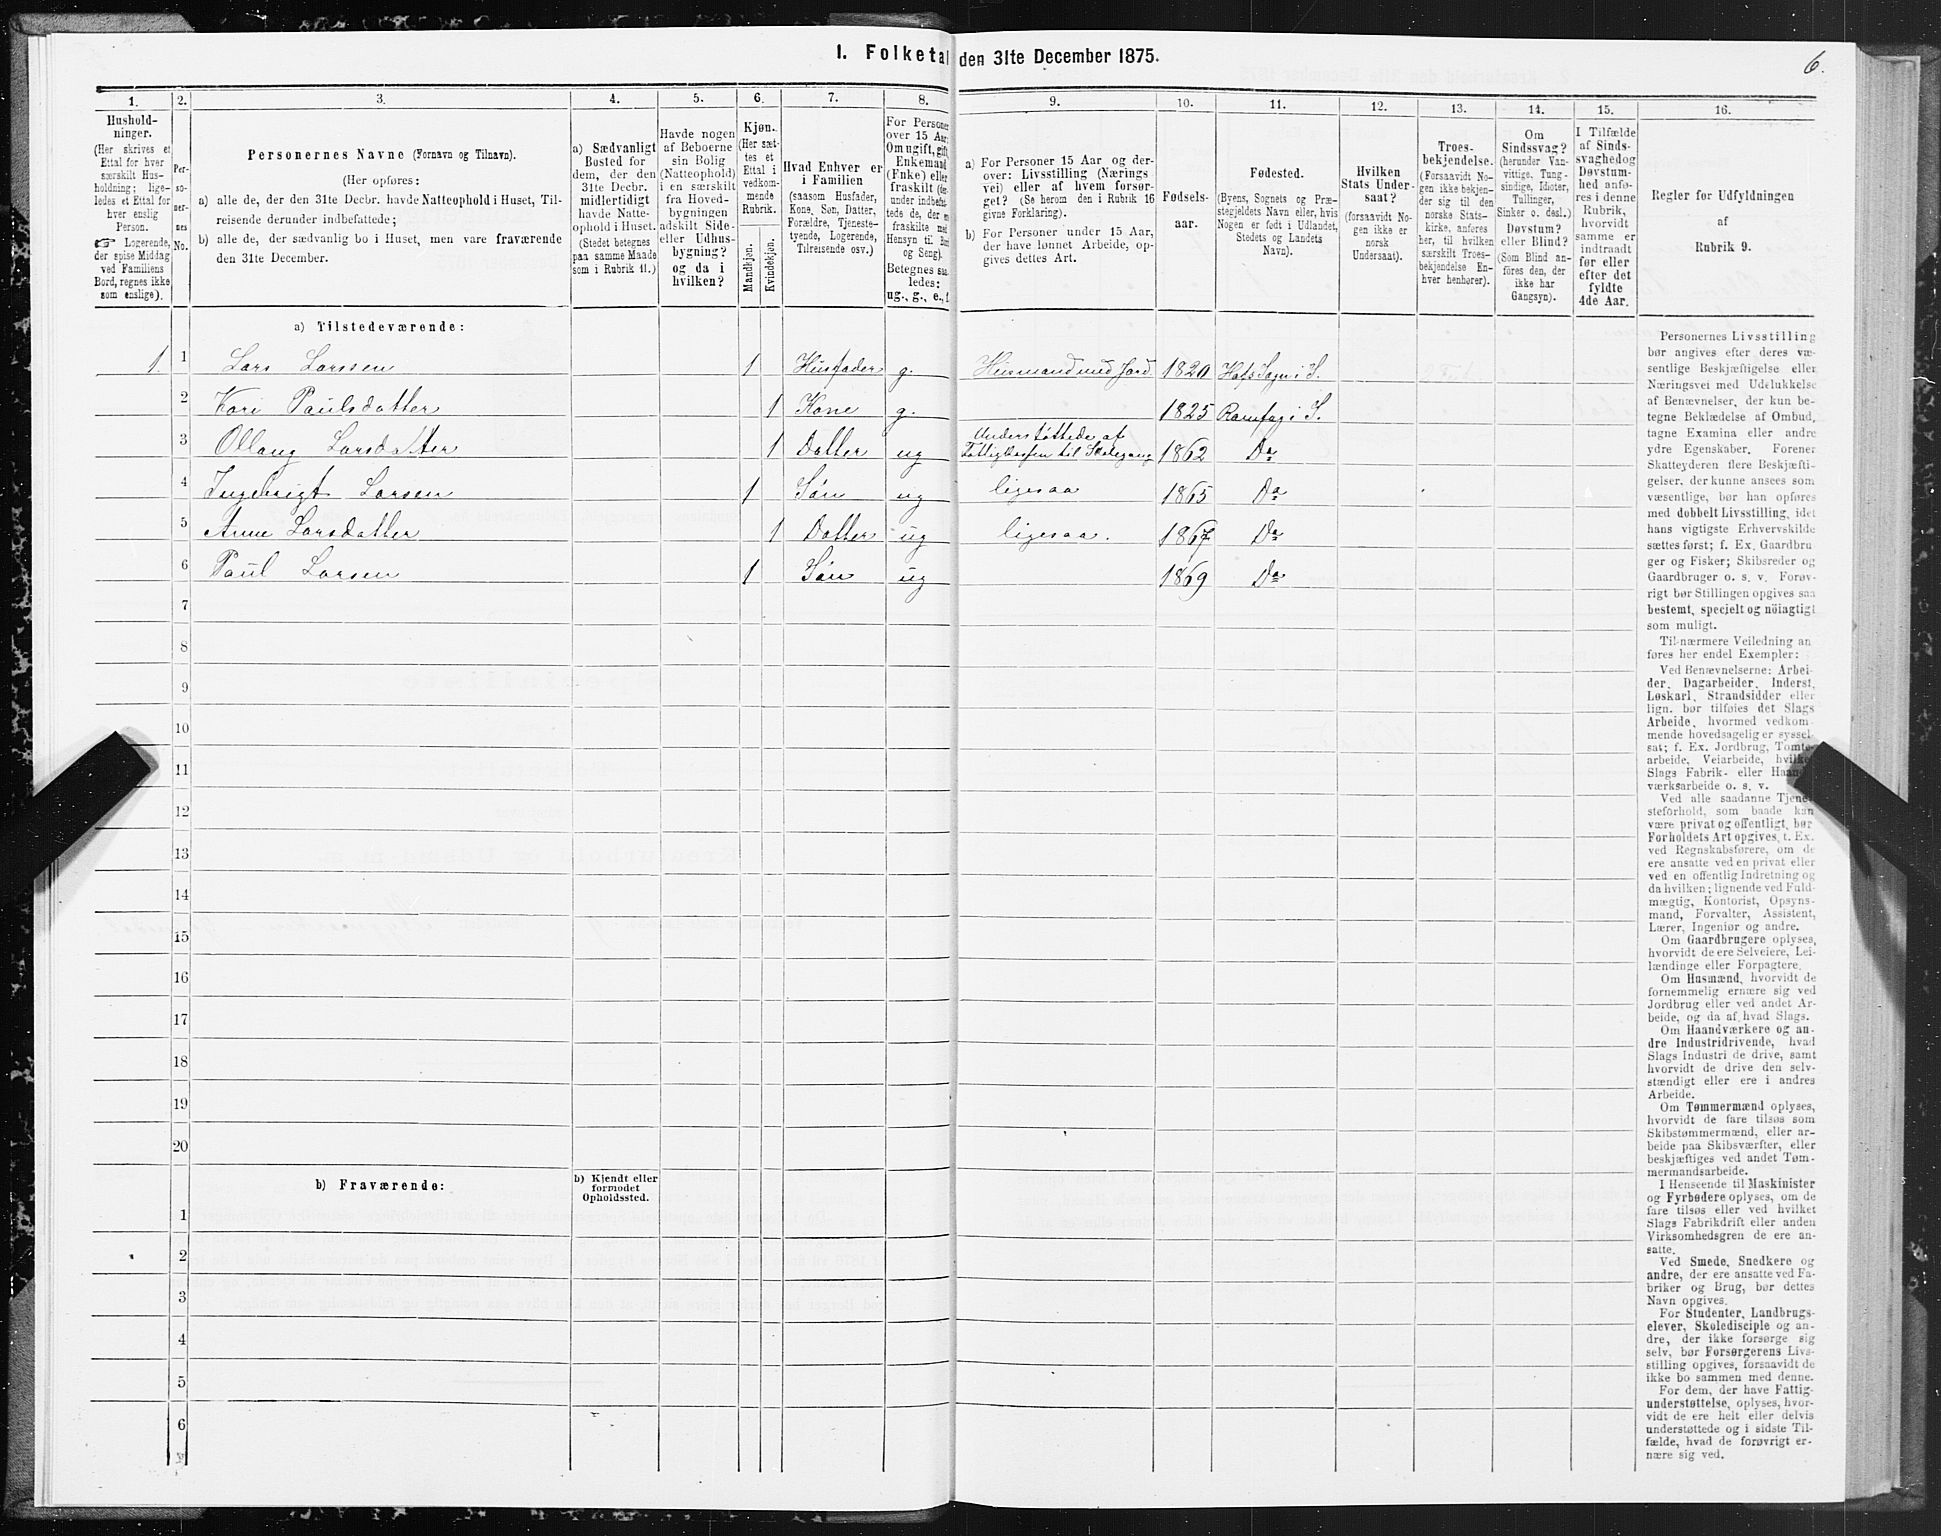 1. Folketal den 31te December 1875.
6.
1.
2.
3.
4.
5.
6.
7.
8.
9.
10.
11.
12.
13.
14.
15.
16.
Hushold-
ninger.
(Her skrives et
Ettal for hver
særskilt Hus-
holdning; lige-
ledes et Ettal for
hver enslig
Person.
☞ Logerende,
der spise Middag
ved Familiens
Bord, regnes ikke
som enslige).
Per-
so-
ner-
nes
No.
Personernes Navne (Fornavn og Tilnavn).
(Her opføres:
a) alle de, der den 31te Decbr. havde Natteophold i Huset, Til-
reisende derunder indbefattede;
b) alle de, der sædvanlig bo i Huset, men vare fraværende
den 31te December.
a) Sædvanligt
Bosted for
dem, der den
31te Decbr.
midlertidigt
havde Natte-
ophold i Huset.
(Stedet betegnes
paa samme Maade
som i Rubrik 11.)
Havde nogen
af Beboerne
sin Bolig
(Natteophold)
i en særskilt
fra Hoved-
bygningen
adskilt Side-
eller Udhus-
bygning?
og da i
hvilken?
Kjøn.
(Her sæt-
tes et
Ettal i
vedkom-
mende
Rubrik.
Mandkjøn.
Kvindekjøn.
Hvad Enhver er
i Familien
(saasom Husfader,
Kone, Søn, Datter,
Forældre, Tjeneste-
tyende, Logerende,
Tilreisende osv.)
For Personer
over 15 Aar:
Om ugift, gift,
Enkemand
(Enke) eller
fraskilt (der-
under indbefat-
tede de, der er
fraskilte med
Hensyn til Bord
og Seng).
Betegnes saa-
ledes:
ug., g., e., f.
a) For Personer 15 Aar og der-
over: Livsstilling (Nærings
vei) eller af hvem forsør-
get? (Se herom den i Rubrik 16
givne Forklaring).
b) For Personer under 15 Aar,
der have lønnet Arbeide, op-
gives dettes Art.
Fødsels-
aar.
Fødested.
(Byens, Sognets og Præ-
stegjeldets Navn eller, hvis
Nogen er født i Udlandet,
Stedets og Landets
Navn).
Hvilken
Stats Under-
saat?
(forsaavidt No-
gen ikke er
norsk
Undersaat).
Troes-
bekjendelse.
(Forsaavidt No-
gen ikke bekjen-
der sig til den
norske Stats-
kirke, anføres
her, til hvilken
særskilt Troes-
bekjendelse En-
hver henhører).
Om
Sindssvag?
(herunder Van-
vittige, Tung-
sindige, Idioter,
Tullinger,
Sinker o. desl.)
Døvstum?
eller Blind?
(Som Blind an-
føres den, der
ikke har
Gangsyn).
I Tilfælde
af Sinds-
svaghed og
Døvstum-
hed anfø-
res i denne
Rubrik,
hvorvidt
samme er
indtraadt
før eller
efter det
fyldte
4de Aar.
Regler for Udfyldningen
af
Rubrik 9.
a) Tilstedeværende:
1. 1 Lars Larssen 1 Husfader g. Husmand med Jord 1820 Hofs Sogn i S.
2 Kari Paulsdatter 1 Kone g. 1825 i S.
3 Ollaug Larsdatter 1 Datter ug Understøttede af
Fattigkassen til Skolegang 1862 Do
4 Ingebrigt Larsen 1 Søn ug ligesaa 1865 Do
5 Anne Larsdatter 1 Datter ug ligesaa. 1867 Do
6 Paul Larsen 1 Søn ug 1869 Do
7
8
9
10
11
12
13
14
15
16
17
18
19
20
b) Fraværende:
b) Kjendt eller
formodet
Opholdssted.
1
2
3
4
5
6
Personernes Livsstilling
bør angives efter deres væ-
sentlige Beskjæftigelse eller
Næringsvei med Udelukkelse
af Benævnelser, der kun be-
tegne Beklædelse af Ombud,
tagne Examina eller andre
ydre Egenskaber. Forener
Skatteyderen flere Beskjæfti-
gelser, der kunne ansees som
væsentlige, bør han opføres
med dobbelt Livsstilling, idet
hans vigtigste Erhvervskilde
sættes først; f. Ex. Gaardbru
ger og Fisker; Skibsreder og
Gaardbruger o. s. v. Forøv-
rigt bør Stillingen opgives saa
bestemt, specielt og nöiagtigt
som muligt.
Til nærmere Veiledning an
føres her endel Exempler:
Ved Benævnelserne: Arbei-
der, Dagarbeider, Inderst,
Løskarl, Strandsidder eller
lign. bør tilføies det Slags
Arbeide, hvormed vedkom-
mende hovedsagelig er syssel-
sat; f. Ex. Jordbrug, Tomte-
arbeide, Veiarbeide, hvilket
Slags Fabrik- eller Haand-
værksarbeide o. s. v.
Ved alle saadanne Tjene-
steforhold, som baade kan
være privat og offentligt, bør
Forholdets Art opgives, t. Ex.
ved Regnskabsførere, om de
ere ansatte ved en privat eller
ved en offentlig Indretning og
da hvilken; lignende ved Fuld-
mægtig, Kontorist, Opsyns-
mand, Forvalter, Assistent,
Lærer, Ingeniør og andre.
Om Gaardbrugere oplyses,
hvorvidt de ere Selveiere, Lei-
lændinge eller Forpagtere.
Om Husmænd, hvorvidt de
fornemmelig ernære sig ved
Jordbrug eller ved andet Ar-
beide, og da af hvad Slags.
Om Haandværkere og an-
dre Industridrivende, hvad
Slags Industri de drive, samt
hvorvidt de drive den selv-
stændigt eller ere i andres
Arbeide.
Om Tømmermænd oplyses,
hvorvidt de fare tilsøs som
Skibstømmermænd, eller ar-
beide paa Skibsværfter, eller
beskjæftiges ved andet Tøm-
mermandsarbeide.
I Henseende til Maskinister
og Fyrbødere oplyses, om de
fare tilsøs eller ved hvilket
Slags Fabrikdrift eller anden
Virksomhedsgren de ere an-
satte.
Ved Smede, Snedkere og
andre, der ere ansatte ved Fa-
briker og Brug, bør dettes
Navn opgives.
For Studenter, Landbrugs-
elever, Skoledisciple og an-
dre, der ikke forsørge sig
selv, bør Forsørgerens Livs-
stilling opgives, forsaavidt de
ikke bo sammen med denne.
For dem, der have Fattig-
understøttelse, oplyses, hvor-
vidt de ere helt eller delvis
understøttede og i sidste Til-
fælde, hvad de forøvrigt er-
nære sig ved.